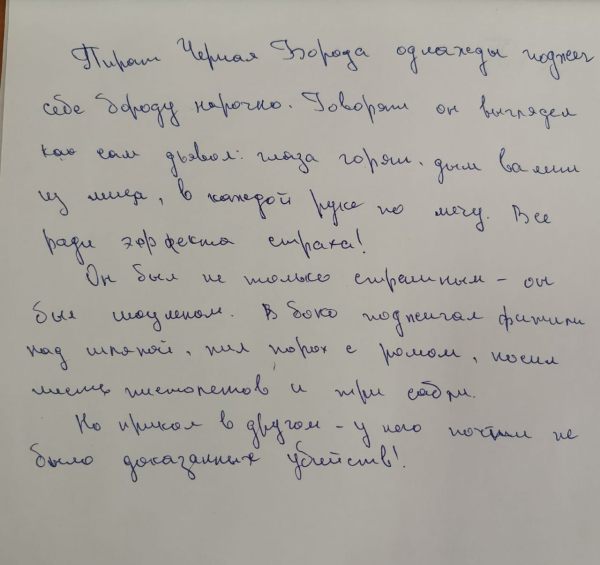 Пират Черная Борода однажды поджег
себе бороду нарочно. Говорят он выглядел
как сам дьявол: глаза горят, дым валит
из лица, в каждой руке по мечу. Все
ради эффекта страха!
Он был не только страшным - он
был шоуменом. В бою поджигал фитили
над шляпой, пил порох с ромом, носил
шесть пистолетов и три сабли.
Но прикол в другом - у него почти не
было доказанных убийств!